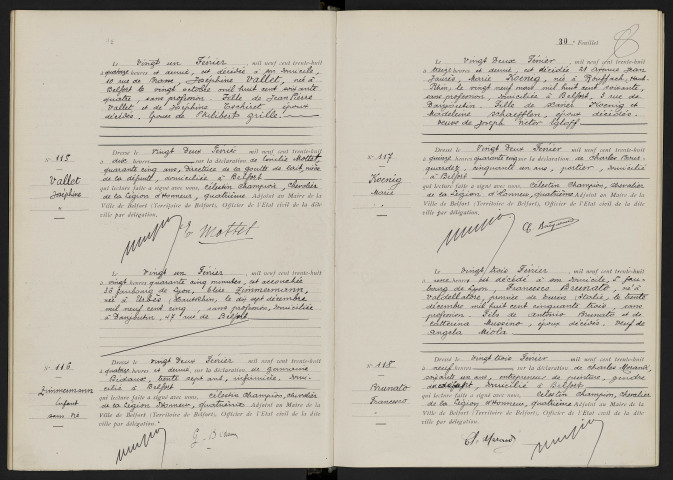 Le vingt un Février mil neuf cent trente-huit
quatorze heures et demie, est décédée à son domicile,
Joséphine Vallet, née à
Belfort le vingt octobre mil huit cent soixante
quatre, sans profession. Fille de Jean Pierre
Vallet et de Joséphine Tschiret, époux
décédés. Epouse de Philibert Grille.
N° 115
Vallet
Joséphine
Dressé le vingt Deux Février mil neuf cent trente-huit
heures sur la déclaration de Emilie Mottet,
quarante cinq ans, Directrice de la goutte de lait, nièce
de la défunte, domiciliée à Belfort
qui lecture faite a signé avec nous, célestin champion, chevalier
de la Légion d'Honneur, quatrième Adjoint au Maire de la
Ville de Belfort (Territoire de Belfort), Officier de l'Etat civil de la dite
ville par délégation.
E Mottet
Le vingt un Février mil neuf cent trente-huit
vingt heures quarante cinq minutes, est accouchée
26 faubourg de Lyon, Elise Zimmermann,
née à Urbès, Haut Rhin, le dix sept décembre
mil neuf cent cinq, sans profession, domiciliée
à Danjoutin, 47, rue de Belfort
N° 116
Zimmermann
Enfant
sans vie
Dressé le vingt Deux Février mil neuf cent trente-huit
quatorze heures et demie, sur la déclaration de Germaine
trente sept ans, infirmière, domi-
cilié à Belfort
qui lecture faite a signé avec nous, célestin champion, chevalier
de la Légion d'Honneur, quatrième Adjoint au Maire de la
Ville de Belfort (Territoire de Belfort), Officier de l'Etat civil de la dite
ville par délégation.
39 Feuillet
8
Le vingt Deux Février mil neuf cent trente-huit
heures et demie, est décédée 21 avenue Jean
Jaurès, Marie Koenig, née à Rouffach, Haut-
Rhin, le vingt neuf août mil huit cent soixante,
sans profession, domiciliée à Belfort, 3 rue de
Danjoutin. Fille de Xavier Koenig et
Madeleine Schaefflen, époux décédés.
Veuve de Joseph Victor Egloff
N° 117
Koenig
Marie
Dressé le vingt Deux Février mil neuf cent trente-huit
quinze heures quarante cinq sur la déclaration de Charles
cinquante un ans, portier, domicilié
à Belfort
qui lecture faite a signé avec nous, célestin champion, chevalier
de la Légion d'Honneur, quatrième Adjoint au Maire de la
Ville de Belfort (Territoire de Belfort), Officier de l'Etat civil de la dite
ville par délégation.
Le vingt trois Février mil neuf cent trente-huit
une heures est décédé à son domicile, fau-
bourg de Lyon, Francesco Brunato, né à
Valdellatore, province de Turin, Italie, le trente
décembre mil huit cent cinquante trois, sans
profession. Fils de Antonio Brunato et de
Catterina Mussino, époux décédés. Veuf de
Angela Miola
N° 118
Brunato
Francesco
Dressé le vingt trois Février mil neuf cent trente-huit
neuf heures sur la déclaration de Charles
soixante un ans, entrepreneur de peinture, gendre
du défunt, domicilié à Belfort
qui lecture faite a signé avec nous, célestin champion, chevalier
de la Légion d'Honneur, quatrième Adjoint au Maire de la
Ville de Belfort (Territoire de Belfort), Officier de l'Etat civil de la dite
ville par délégation.